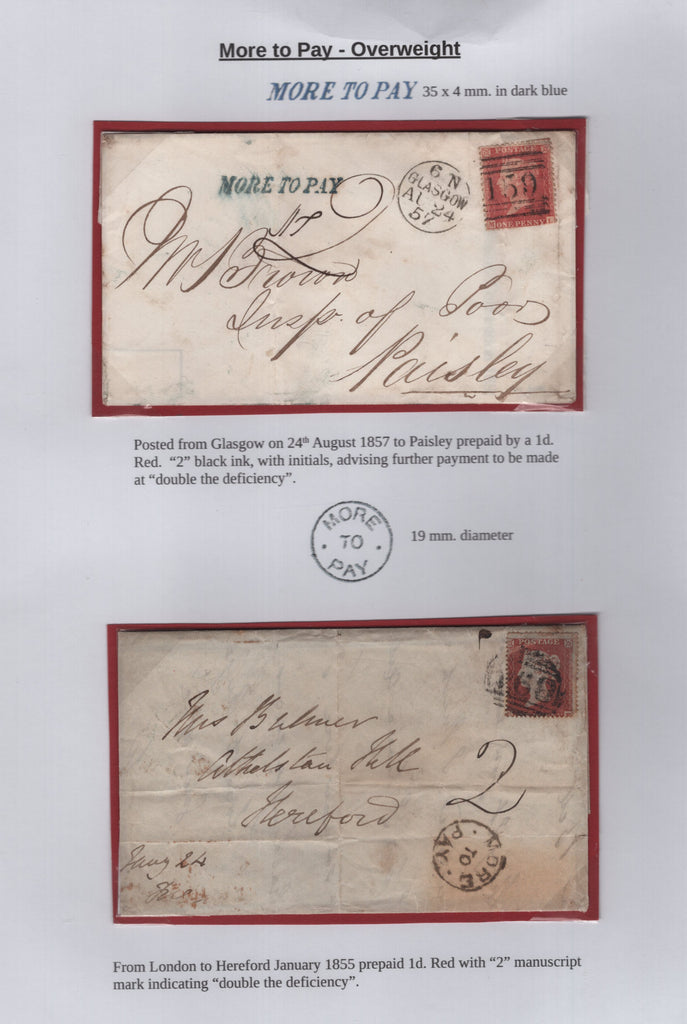 More to Pay - Overweight
MORE TO PAY 35 x 4 mm. in dark blue
MORE TO PAY
6 N
GLASGOW
AU 24
57
POSTAGE
159
ONE PENNY
Mr J Brown
Insp. of Poor
Paisley
2
Posted from Glasgow on 24th August 1857 to Paisley prepaid by a 1d.
Red. “2” black ink, with initials, advising further payment to be made
at “double the deficiency”.
MORE
TO
PAY
19 mm. diameter
POSTAGE
Mrs Bulmer
Athelstan Hill
Hereford
2
MORE
TO
PAY
24
From London to Hereford January 1855 prepaid 1d. Red with “2” manuscript
mark indicating “double the deficiency”.